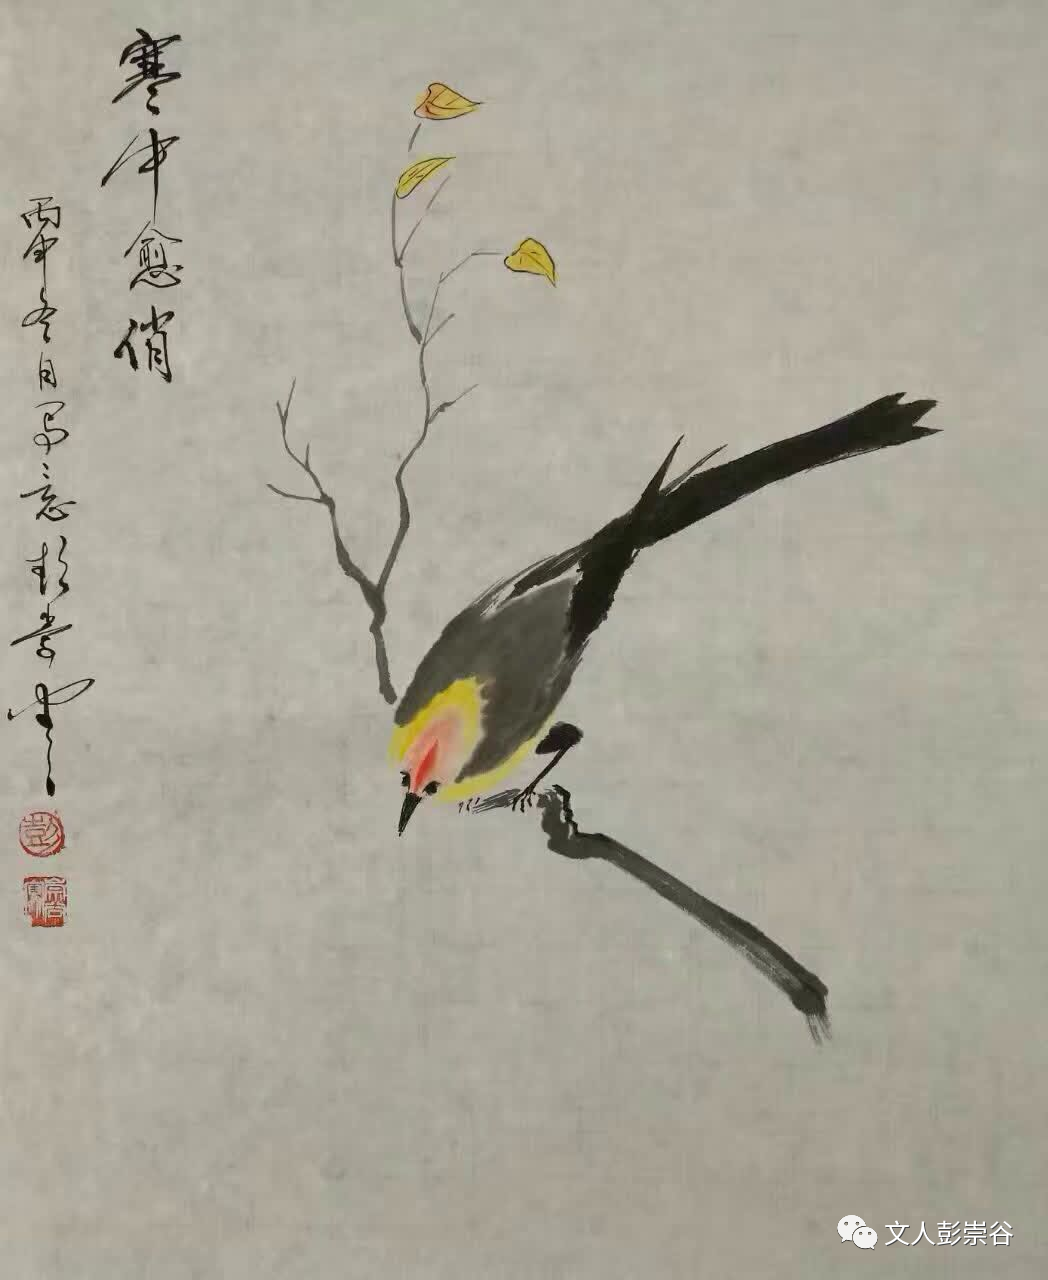 寒中愈俏
丙申冬月写意彭崇谷
彭
文人彭崇谷